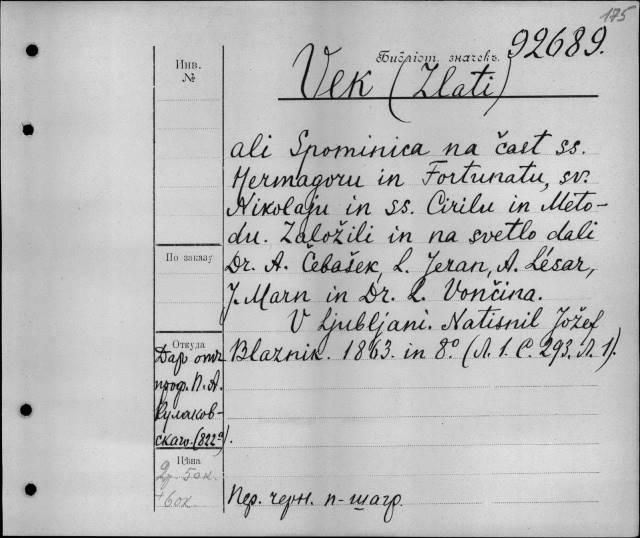 175
Библіот. значекъ. 92689.
Инв.
№
Vek (Zlati)
ali Spominica na čast ss.
Hermagoru in Fortunatu, sv.
Nikolaju in ss. Cirilu in Meto-
du. Založili in na svetlo dali
По заказу
Dr. A. Čebašek, L. Jeran, A. Lésar,
J. Marn in Dr. L. Vončina.
V Ljubljani. Natisnil Jožef
Blaznik. 1863. in 8.° (Л. 1. С. 293. Л. 1).
Откуда
Даръ отъ
проф. П. А.
Кулаков-
скаго. (822ª).
Цѣна
2р. 50к.
+ 60к.
Пер. черн. п-шагр.